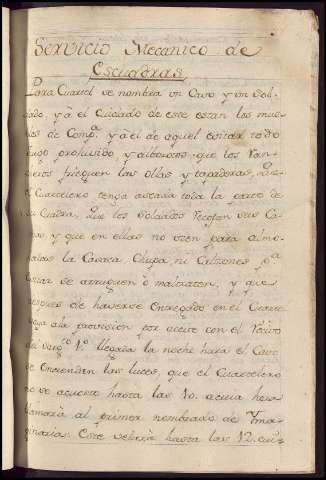 Servicio Mecanico de
Escuadras
Para Cuartel se nombra un Cavo y un Sol-
dado y á el Cuidado de este estan los mue-
bles de Comp.ª y á el de aquel evitar todo
Juego prohivido y alborotos que los Ran-
cheros frieguen las ollas y tapaderas, Que
el Cuartelero tenga aseada toda la parte de
su Cuadra, Que los Soldados recojan sus Ca-
mas y que en ellas no usen para almo-
adas la Casaca Chupa ni Calzones p.ª
evitar se arruguen ó maltraten, y que
despues de haverse entregado en el Cuarte
baya á la provision por aceite con el Recivo
del Sarg.to 1.º llegada la noche hara el Cavo
se Enciendan las luces, que el Cuartelero
no se acueste hasta las 10. a cuia hora
llamaria al primer nombrado de Yma-
ginaria. Este velaria hasta las 12. cui-